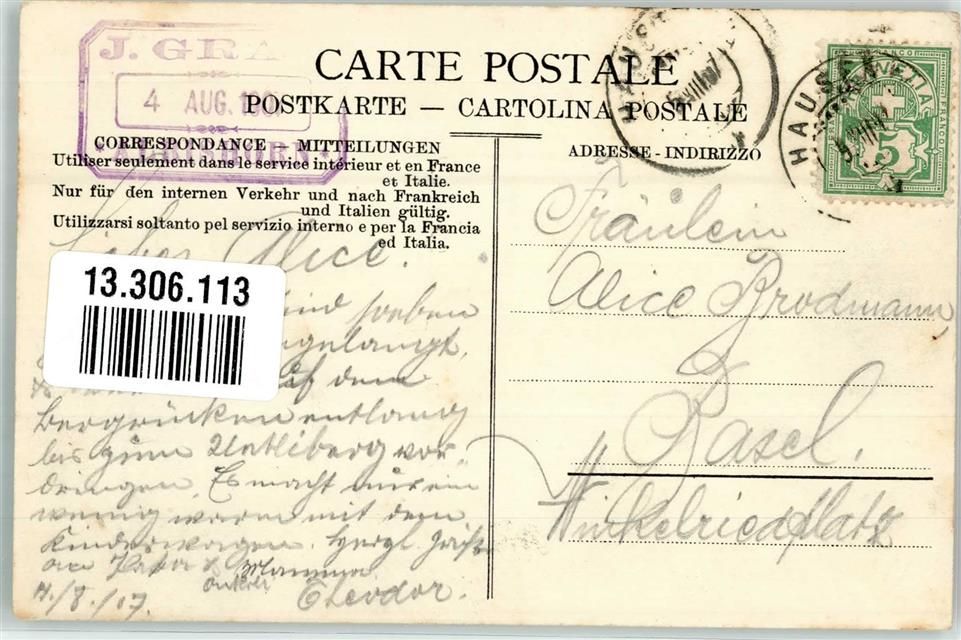 J. GRA
4 AUG. 190
CARTE POSTALE
POSTKARTE — CARTOLINA POSTALE
CORRESPONDANCE - MITTEILUNGEN
Utiliser seulement dans le service intérieur et en France
et Italie.
Nur für den internen Verkehr und nach Frankreich
und Italien gültig.
Utilizzarsi soltanto pel servizio interno e per la Francia
ed Italia.
ADRESSE - INDIRIZZO
HAUSEN
FRANCO
HELVETIA
5
Liebe Alice.
13.306.113
sind soeben
angelangt,
auf dem
Bergrücken entlang
bis zum Uetliberg vor-
dringen. Es macht nur ein
wenig warm mit dem
Kinderwagen. Herzl. Grüße
an Papa & Mamma
Theodor.
4./8./07.
Fräulein
Alice Brodmann,
Basel.
Winkelriedplatz